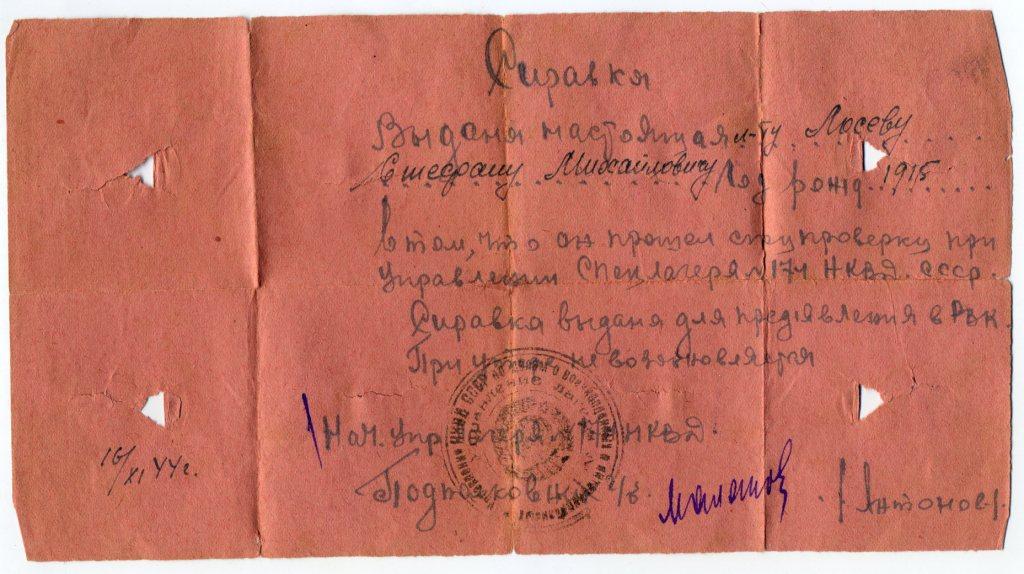 Справка
Выдана настоящая л-ту Лосеву
Стефану Михайловичу Год рожд. 1915
в том, что он прошел спецпроверку при
управлении Спецлагеря №174 НКВД СССР.
Справка выдана для предявления в РВК.
При утере не возобновляется
Нач. Упр. НКВД.
16/XI 44 г.
Подполковник г/б. /Антонов/.